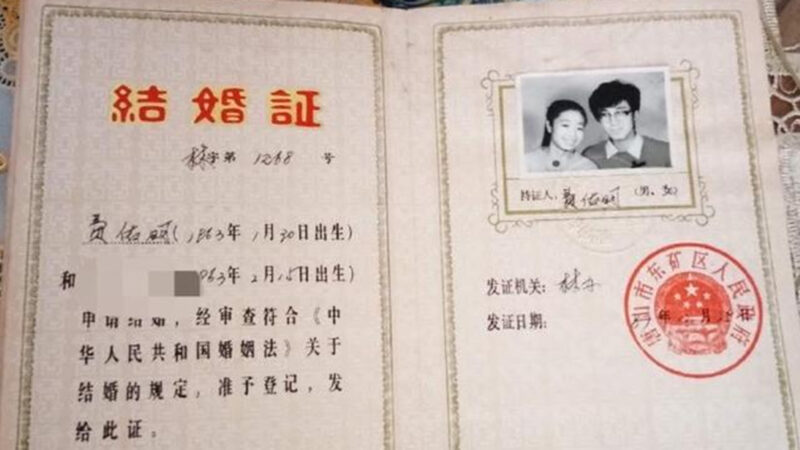 結婚証
林字第1268号
贾佑明(1963年1月30日出生)
和 1963年2月15日出生)
申请结婚，经审查符合《中
华人民共和国婚姻法》关于
结婚的规定，准予登记，发
给此证。
持证人：贾佑明(男、女)
发证机关：林
发证日期：年 月 日
唐山市东矿区人民政府